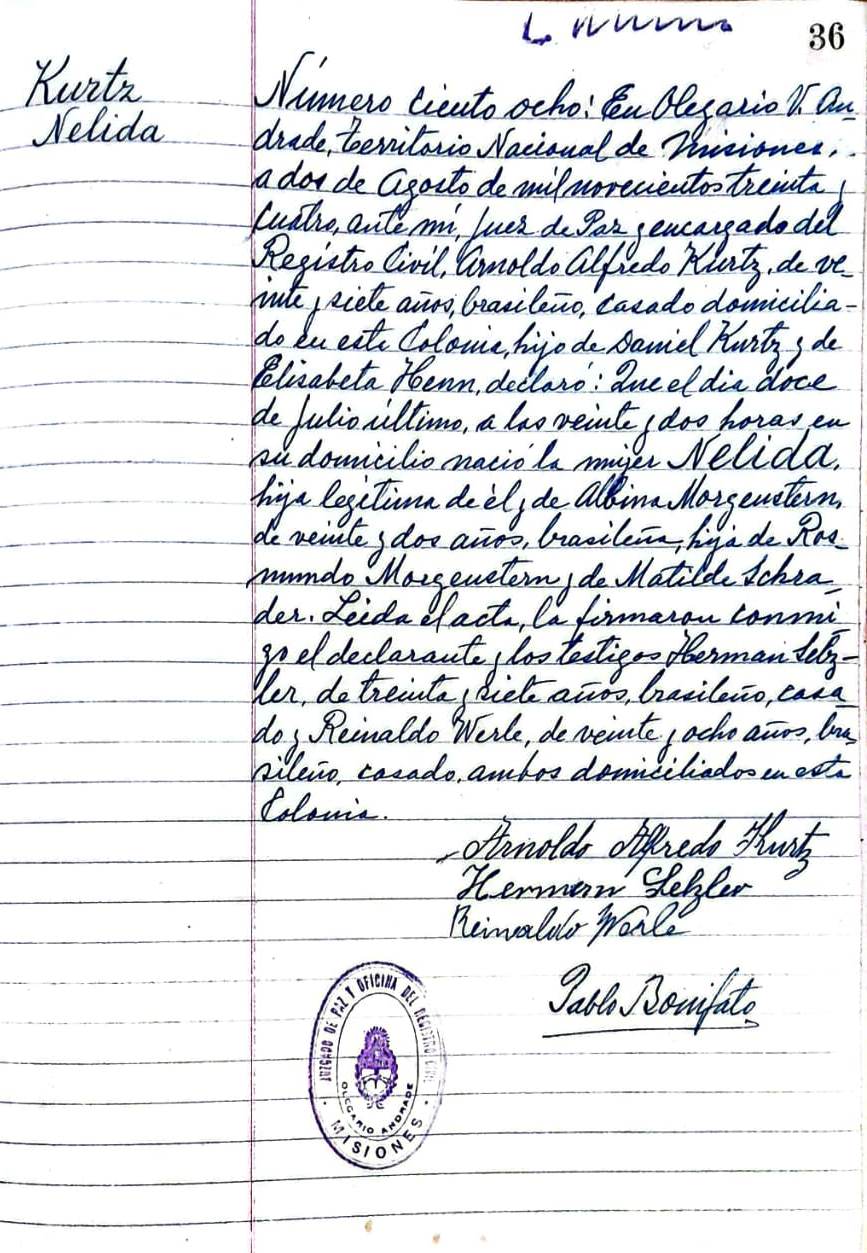 36
Kurtz
Nelida
Número ciento ocho: En Olegario V. An-
drade, territorio Nacional de Misiones,
a dos de Agosto de mil novecientos treinta y
cuatro, ante mí, Juez de Paz y encargado del
Registro Civil, Arnoldo Alfredo Kurtz, de ve-
inte y siete años, brasileño, casado domicilia-
do en esta Colonia, hijo de Daniel Kurtz y de
Elisabeta Henn, declaró: Que el dia doce
de Julio último, a las veinte y dos horas en
su domicilio nació la mujer Nelida,
hija legítima de él y de Albina Morgenstern,
de veinte y dos años, brasileña, hija de Ros-
mundo Morgenstern y de Matilde Schra-
der. Leida el acta, la firmaron conmi-
go el declarante y los testigos Herman Setz-
ler, de treinta y siete años, brasileño, casa-
do y Reinaldo Werle, de veinte y ocho años, bra-
sileño, casado, ambos domiciliados en esta
Colonia.
Arnoldo Alfredo Kurtz
Hermann
Reinaldo Werle
Pablo Bonifato
JUZGADO DE PAZ Y OFICINA DEL REGISTRO CIVIL
OLEGARIO ANDRADE
MISIONES